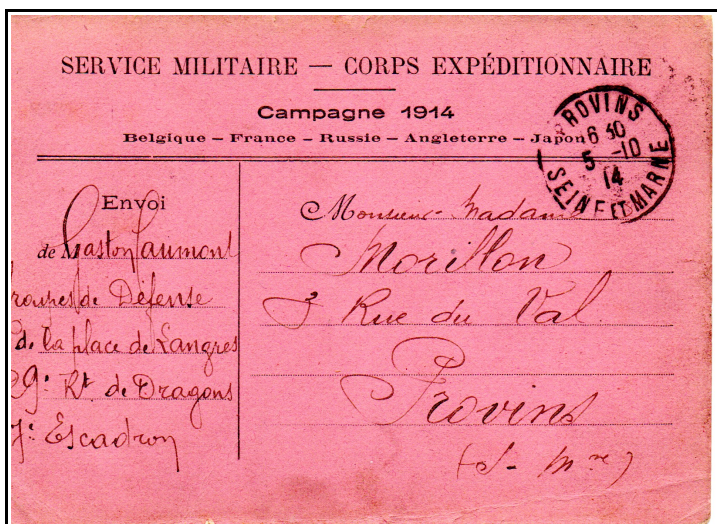 SERVICE MILITAIRE — CORPS EXPÉDITIONNAIRE
Campagne 1914
Belgique – France – Russie – Angleterre – Japon
PROVINS
6 30
5 -10
14
SEINE ET MARNE
Envoi
de M Gaston Jaumont
Troupes de Défense
de la place de Langres
29e Rt de Dragons
7e Escadron
Monsieur Madame
Morillon
Rue du Val
Provins
(S- Mne)